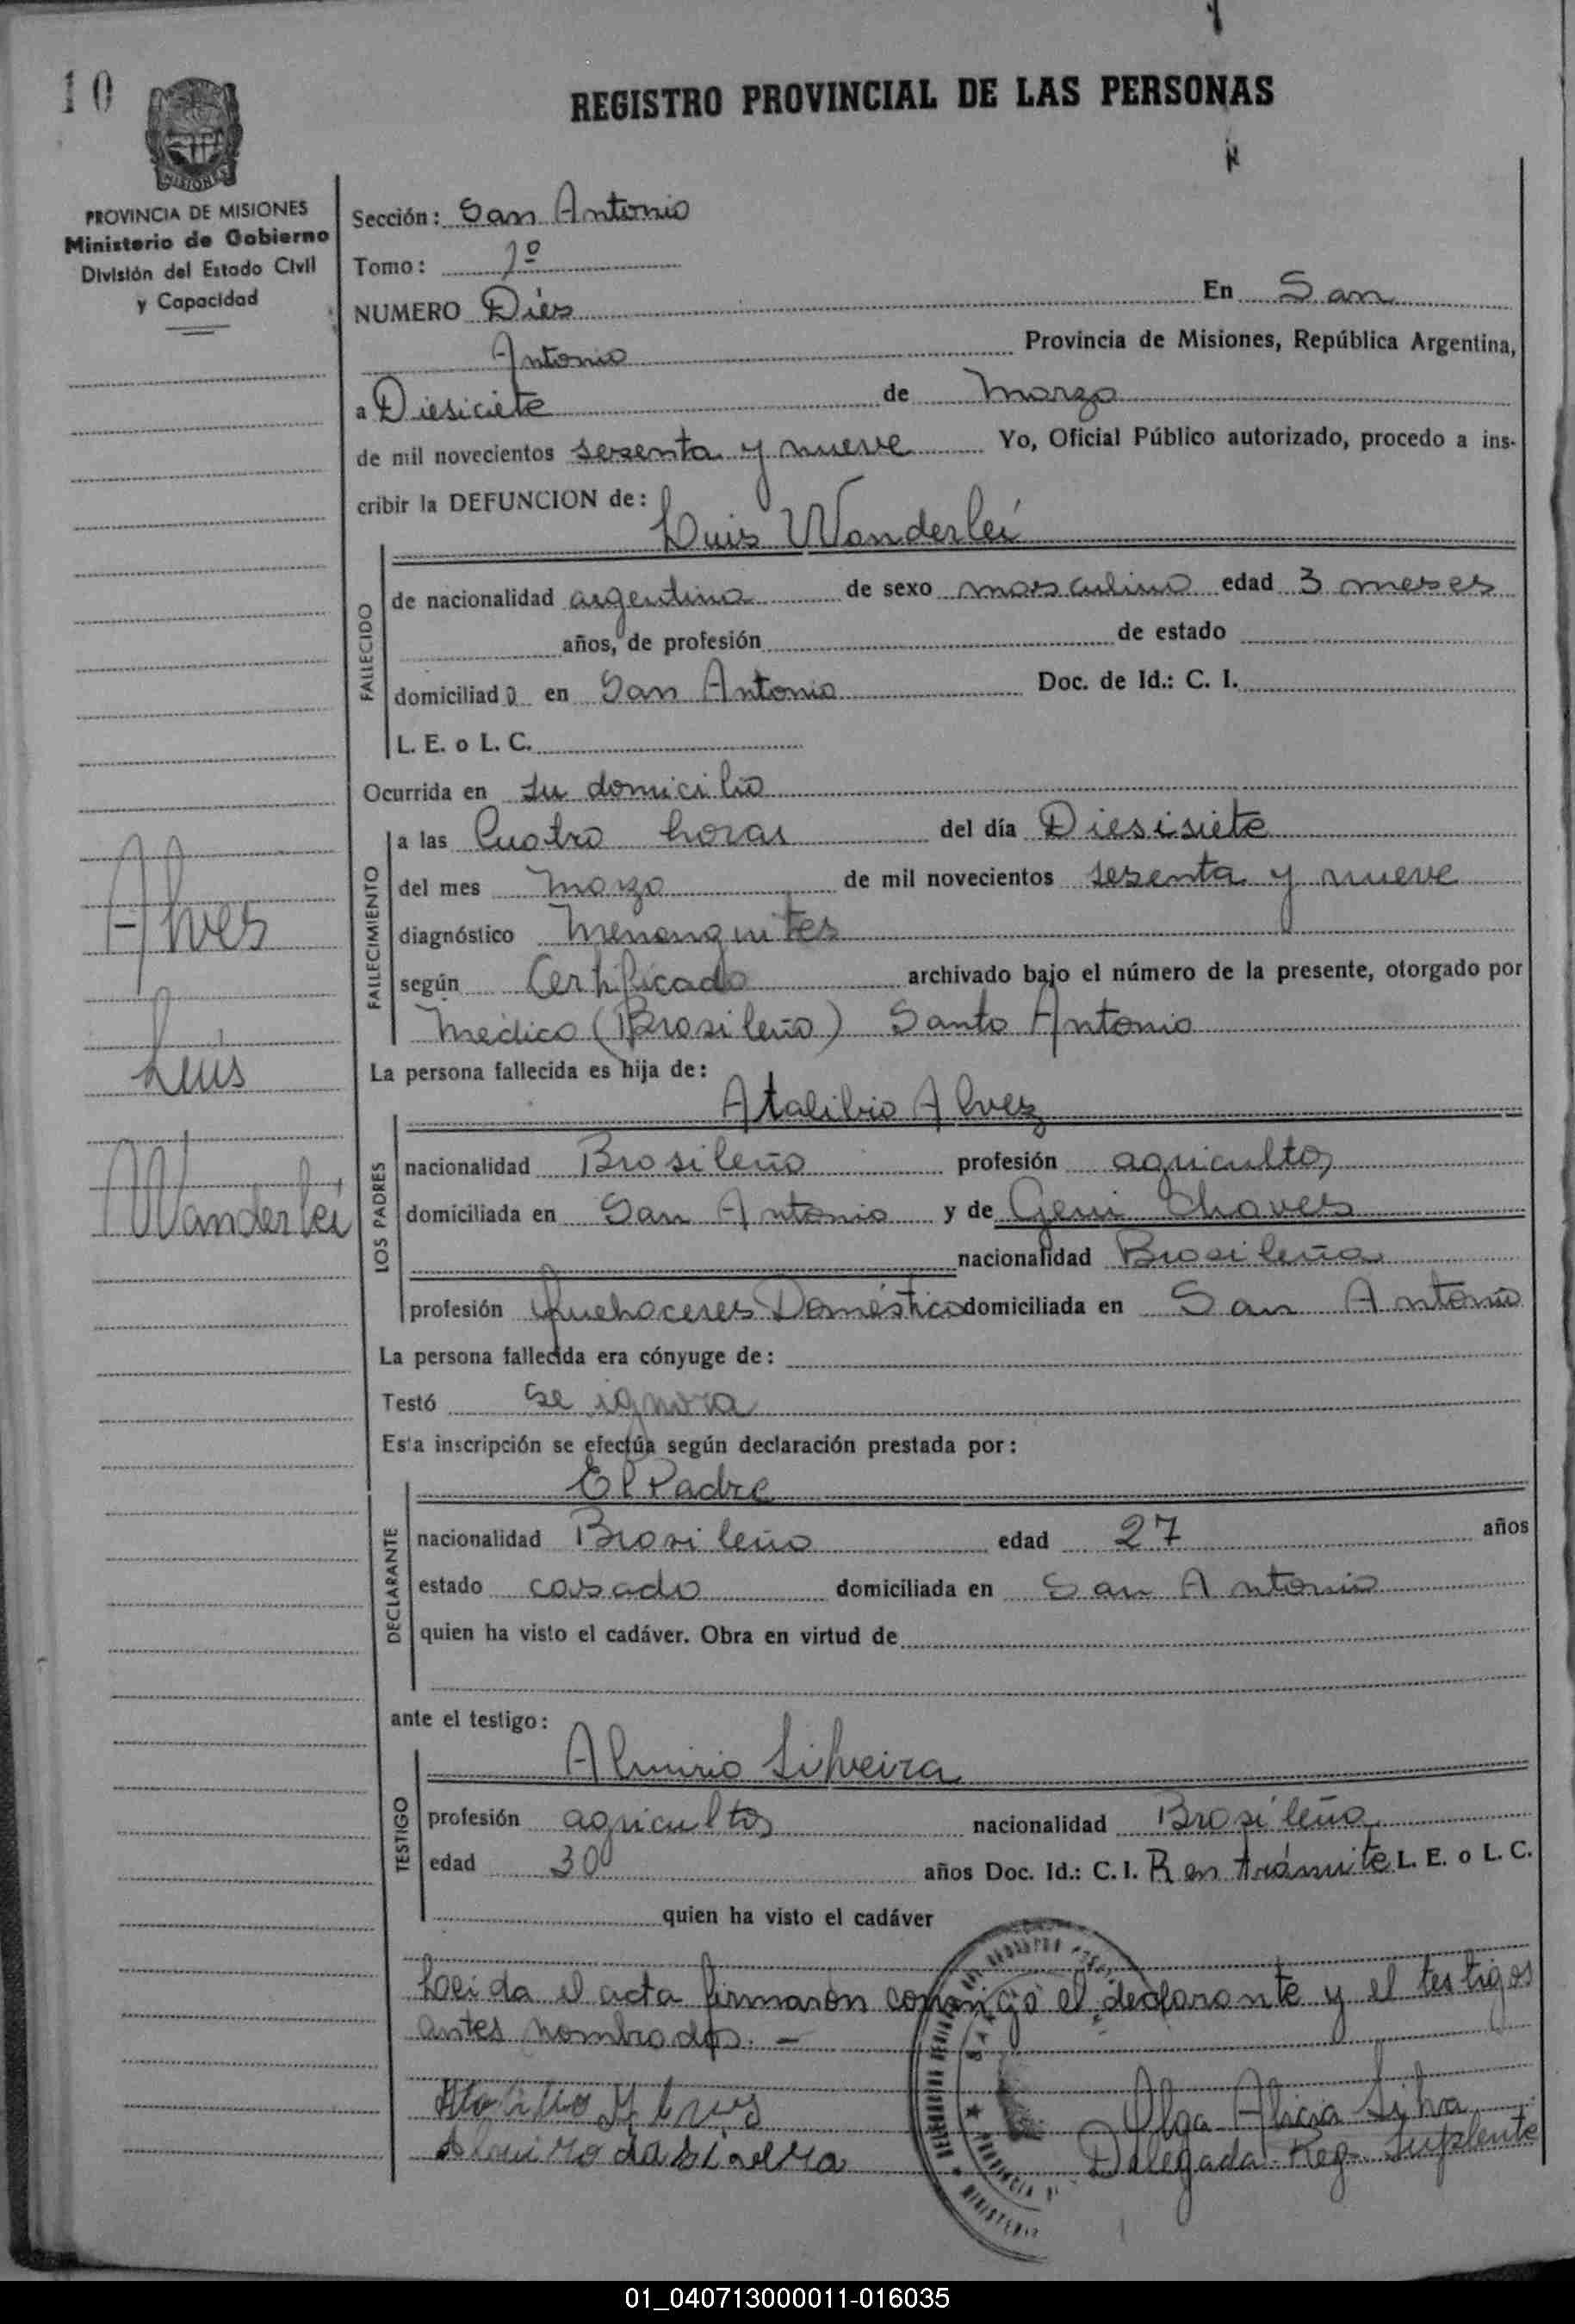 10
REGISTRO PROVINCIAL DE LAS PERSONAS
MISIONES
PROVINCIA DE MISIONES
Ministerio de Gobierno
División del Estado Civil
y Capacidad
Sección: San Antonio
Tomo: 1º
NUMERO Diés En San
Antonio Provincia de Misiones, República Argentina,
a Diesiciete de marzo
de mil novecientos sesenta y nueve Yo, Oficial Público autorizado, procedo a ins-
cribir la DEFUNCION de:
Luis Wanderlei
FALLECIDO
de nacionalidad argentina de sexo masculino edad 3 meses
años, de profesión de estado
domiciliado en San Antonio Doc. de Id.: C. I.
L. E. o L. C.
Ocurrida en su domicilio
FALLECIMIENTO
a las Cuatro horas del día Diesisiete
del mes marzo de mil novecientos sesenta y nueve
diagnóstico Menanguites
según Certificado archivado bajo el número de la presente, otorgado por
Médico (Brasileño) Santo Antonio
Alves
Luis
Wanderlei
La persona fallecida es hija de:
Atalibio Alvez
LOS PADRES
nacionalidad Brasileño profesión agricultor
domiciliada en San Antonio y de Geni Chaves
nacionalidad Brasileña
profesión Quehaceres Doméstico domiciliada en San Antonio
La persona fallecida era cónyuge de:
Testó se ignora
Esta inscripción se efectúa según declaración prestada por:
El Padre
DECLARANTE
nacionalidad Brasileño edad 27 años
estado casado domiciliada en San Antonio
quien ha visto el cadáver. Obra en virtud de
ante el testigo:
Almirio Silveira
TESTIGO
profesión agricultor nacionalidad Brasileña
edad 30 años Doc. Id.: C. I. R en trámite L. E. o L. C.
quien ha visto el cadáver
Leida el acta firmaron conmigo el declarante y el testigos
antes nombrados. —
Olga Alicia Silva
Delegada Reg. Suplente
01_040713000011-016035